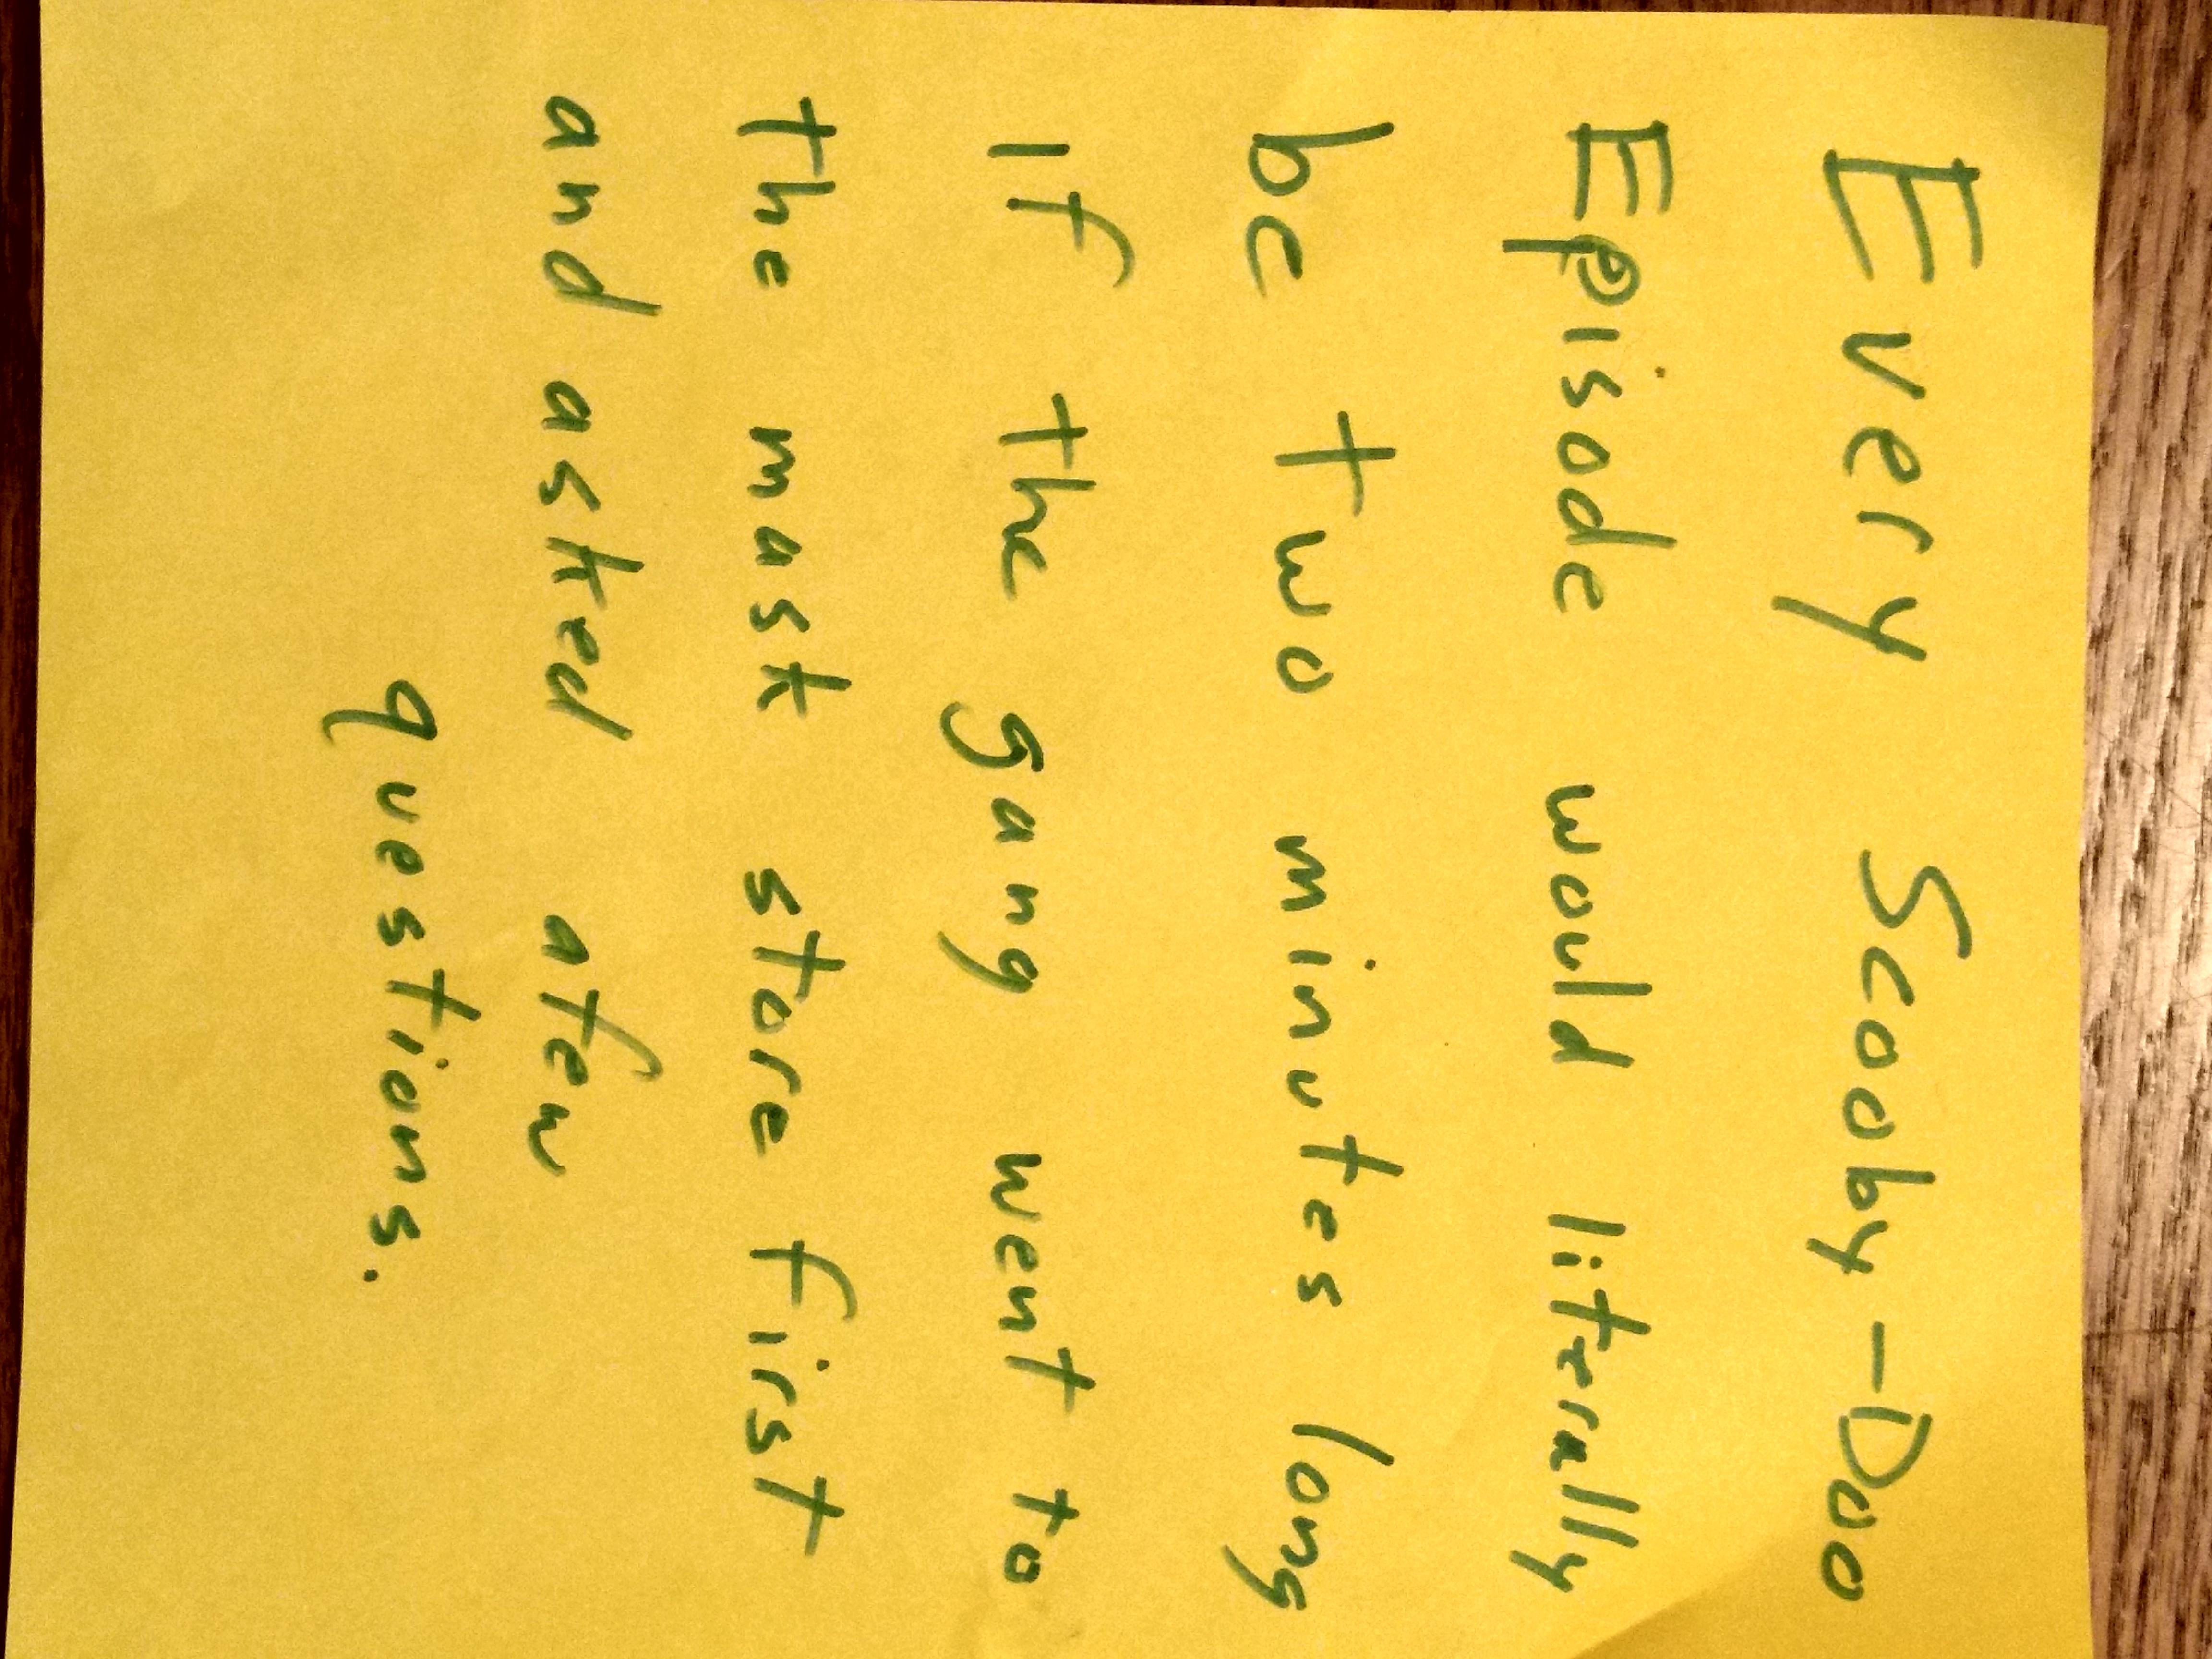 Every Scooby-Doo
Episode would literally
be two minutes long
If the gang went to
the mask store first
and asked a few
questions.